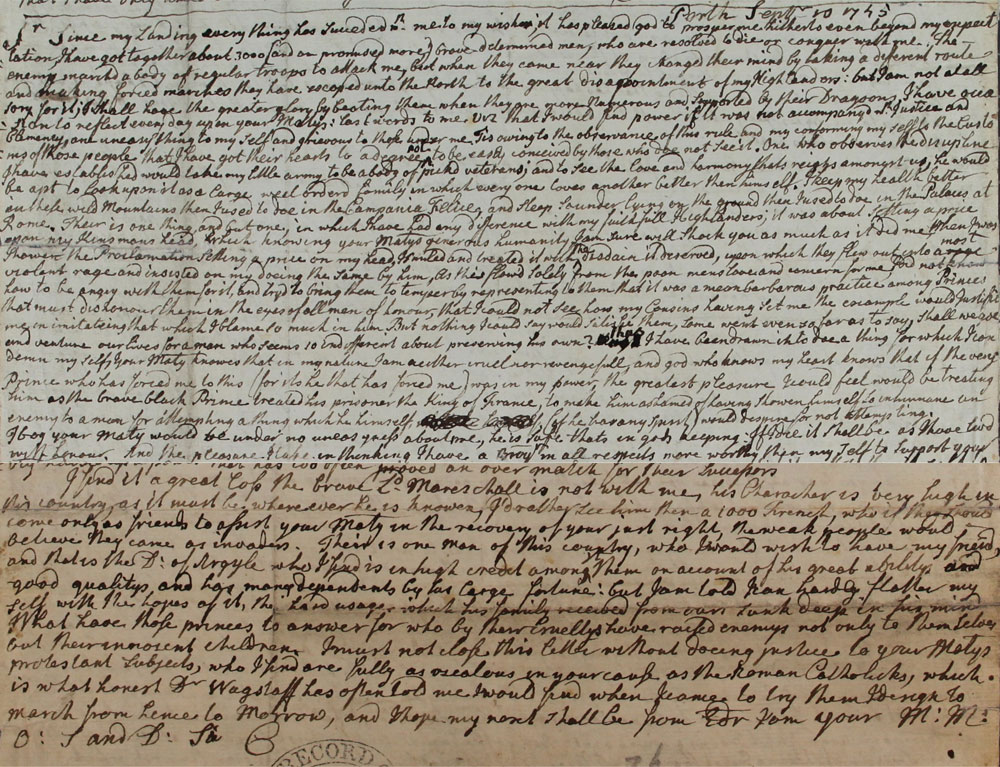 Perth Septr. 10 1745
Sr. Since my Landing everything has succeded to my wishes, it has pleased god to prosper me hitherto even beyond my expect
tation, I have got together about 3000 (and am promised more) brave determined men, who are resolved to die or conquer with me. The
enemy marchd a body of regular troops to attack me, but when they came near they changed their mind by taking a different route
and making forced marches they have escaped unto the North to the great disappointment of my Highlanders: but I am not at all
sory for it; I shall have the greater glory by beating them when they are more Numerous and supported by their Dragoons. I have occa
sion to reflect every day upon your Matys: last words to me viz that I would find power if it was not accompanyd wt. Justice and
Clemency, an uneasy thing to my self and grievous to those under me. Tis owing to the observance of this rule and my conforming my self to the Custo
ms of those people that I have got their hearts to a degree not to be easily conceived by those who doe not see it. One who observes the discipline
I have established would take my little army to be a body of pickd veterans; and to see the love and harmony that reighs amongst us, he would
be apt to Look upon it as a Large well orderd family in which every one loves another better then him self. I keep my health better
en these wild Mountains then I used to doe in the Campania Felice, and sleep sounder lying on the ground then I used to doe in the Palaces at
Rome. Their is one thing, and but one, in which I have had any difference with my faithfull Highlanders; it was about setting a price
upon my Kinsmans Head, which knowing your Matys generous humanity I am sure will shock you as much as it did me when I was
showen the Proclamation setting a price on my head, I smiled and treated it with the disdain it deserved, upon which they flew out into a most
violent rage and insisted on my doeing the same by him, As this flowd solely from the poor mens love and concern for me I did not know
how to be angry with them for it, and tryd to bring them to temper by representing to them that it was a mean barbarous practice among Princes
that must dishonour them in the eyes of all men of honour, that I could not see how my Cousins having set me the example would Justifie
me in imitateing that which I blame so much in him. But nothing I could say would satisfie them, some went even so far as to say, shall we doe
and venture our lives for a man who seems so endifferent about preserving his own? Thus I have been drawn in to doe a thing for which I con
demn my self, Your Maty knowes that in my nature I am neither cruel nor revengefull, and god who knows my heart knows that if the very
Prince who has forced me to this (for its he that has forced me) was in my power, the greatest pleasure I could feel would be treating
him as the brave black Prince treated his prisoner the King of France, to make him ashamed of having showen himself so inhumane an
enemy to a man for attempting a thing which he himself (if he has any spirit) would despise for not attempting.
I beg your Maty would be under no uneasyness about me, he is safe thats in gods keeping. If I die it shall be as I have lived
wt. honour. And the pleasure I take in thinking I have a Broyr in all respects more worthy then my self to support your
that has too often proved an over match for their successors
I find it a great loss the brave Ld. Mareschall is not with me, his Character is very high in
this country, as it must be where ever he is knowen, I'd rather see him then a 1000 French, who if they should
come only as friends to assist your Maty in the recovery of your just right, the weak people would
believe they came as invaders. Their is one man of this country, who I would wish to have my friend,
and that is the D: of Argyle who I find is in high credit among them on account of his great ability and
good qualitys, and has many dependents by his large fortune: but I am told I can hardly flatter my
self with the hopes of it, the hard usage which his family received from ours sunk deep in his min
What have those princes to answer for who by their Cruellys have raised enemys not only to themselves
but their innocent children. I must not close this letter without doeing justice to your Matys
protestant subjects, who I find are fully as zealous in your cause as the Roman Catholicks, which
is what honest Dr Wagstaff has often told me I would find when I came to try them I design to
march from hence to Morrow, and I hope my next shall be from Edr I am your M: M:
O: S and D: Sn C
RECORD